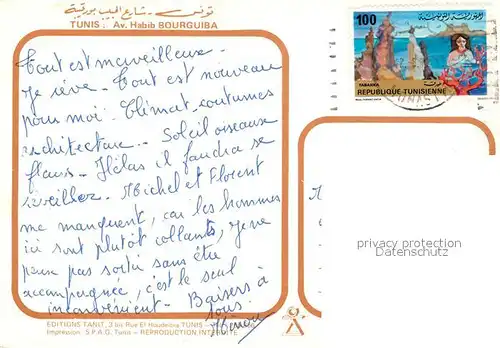 تونس - شارع الحبيب بورقيبة
TUNIS : Av. Habib BOURGUIBA
Tout est merveilleux.
Je rêve. Tout est nouveau
pour moi. Climat, coutumes
architecture. Soleil oiseaux
fleurs. Hélas il faudra se
réveiller. Michel et Florent
me manquent, car les hommes
ici sont plutôt collants, je ne
peux pas sortir sans être
accompagnée, c'est le seul
inconvénient. Baisers à
tous.
EDITIONS TANIT, 3 bis Rue El Houdeibia TUNIS
Impression : S.P.A.G. Tunis - REPRODUCTION INTERDITE
100
الجمهورية التونسية
TABARKA
REPUBLIQUE TUNISIENNE
privacy protection
Datenschutz